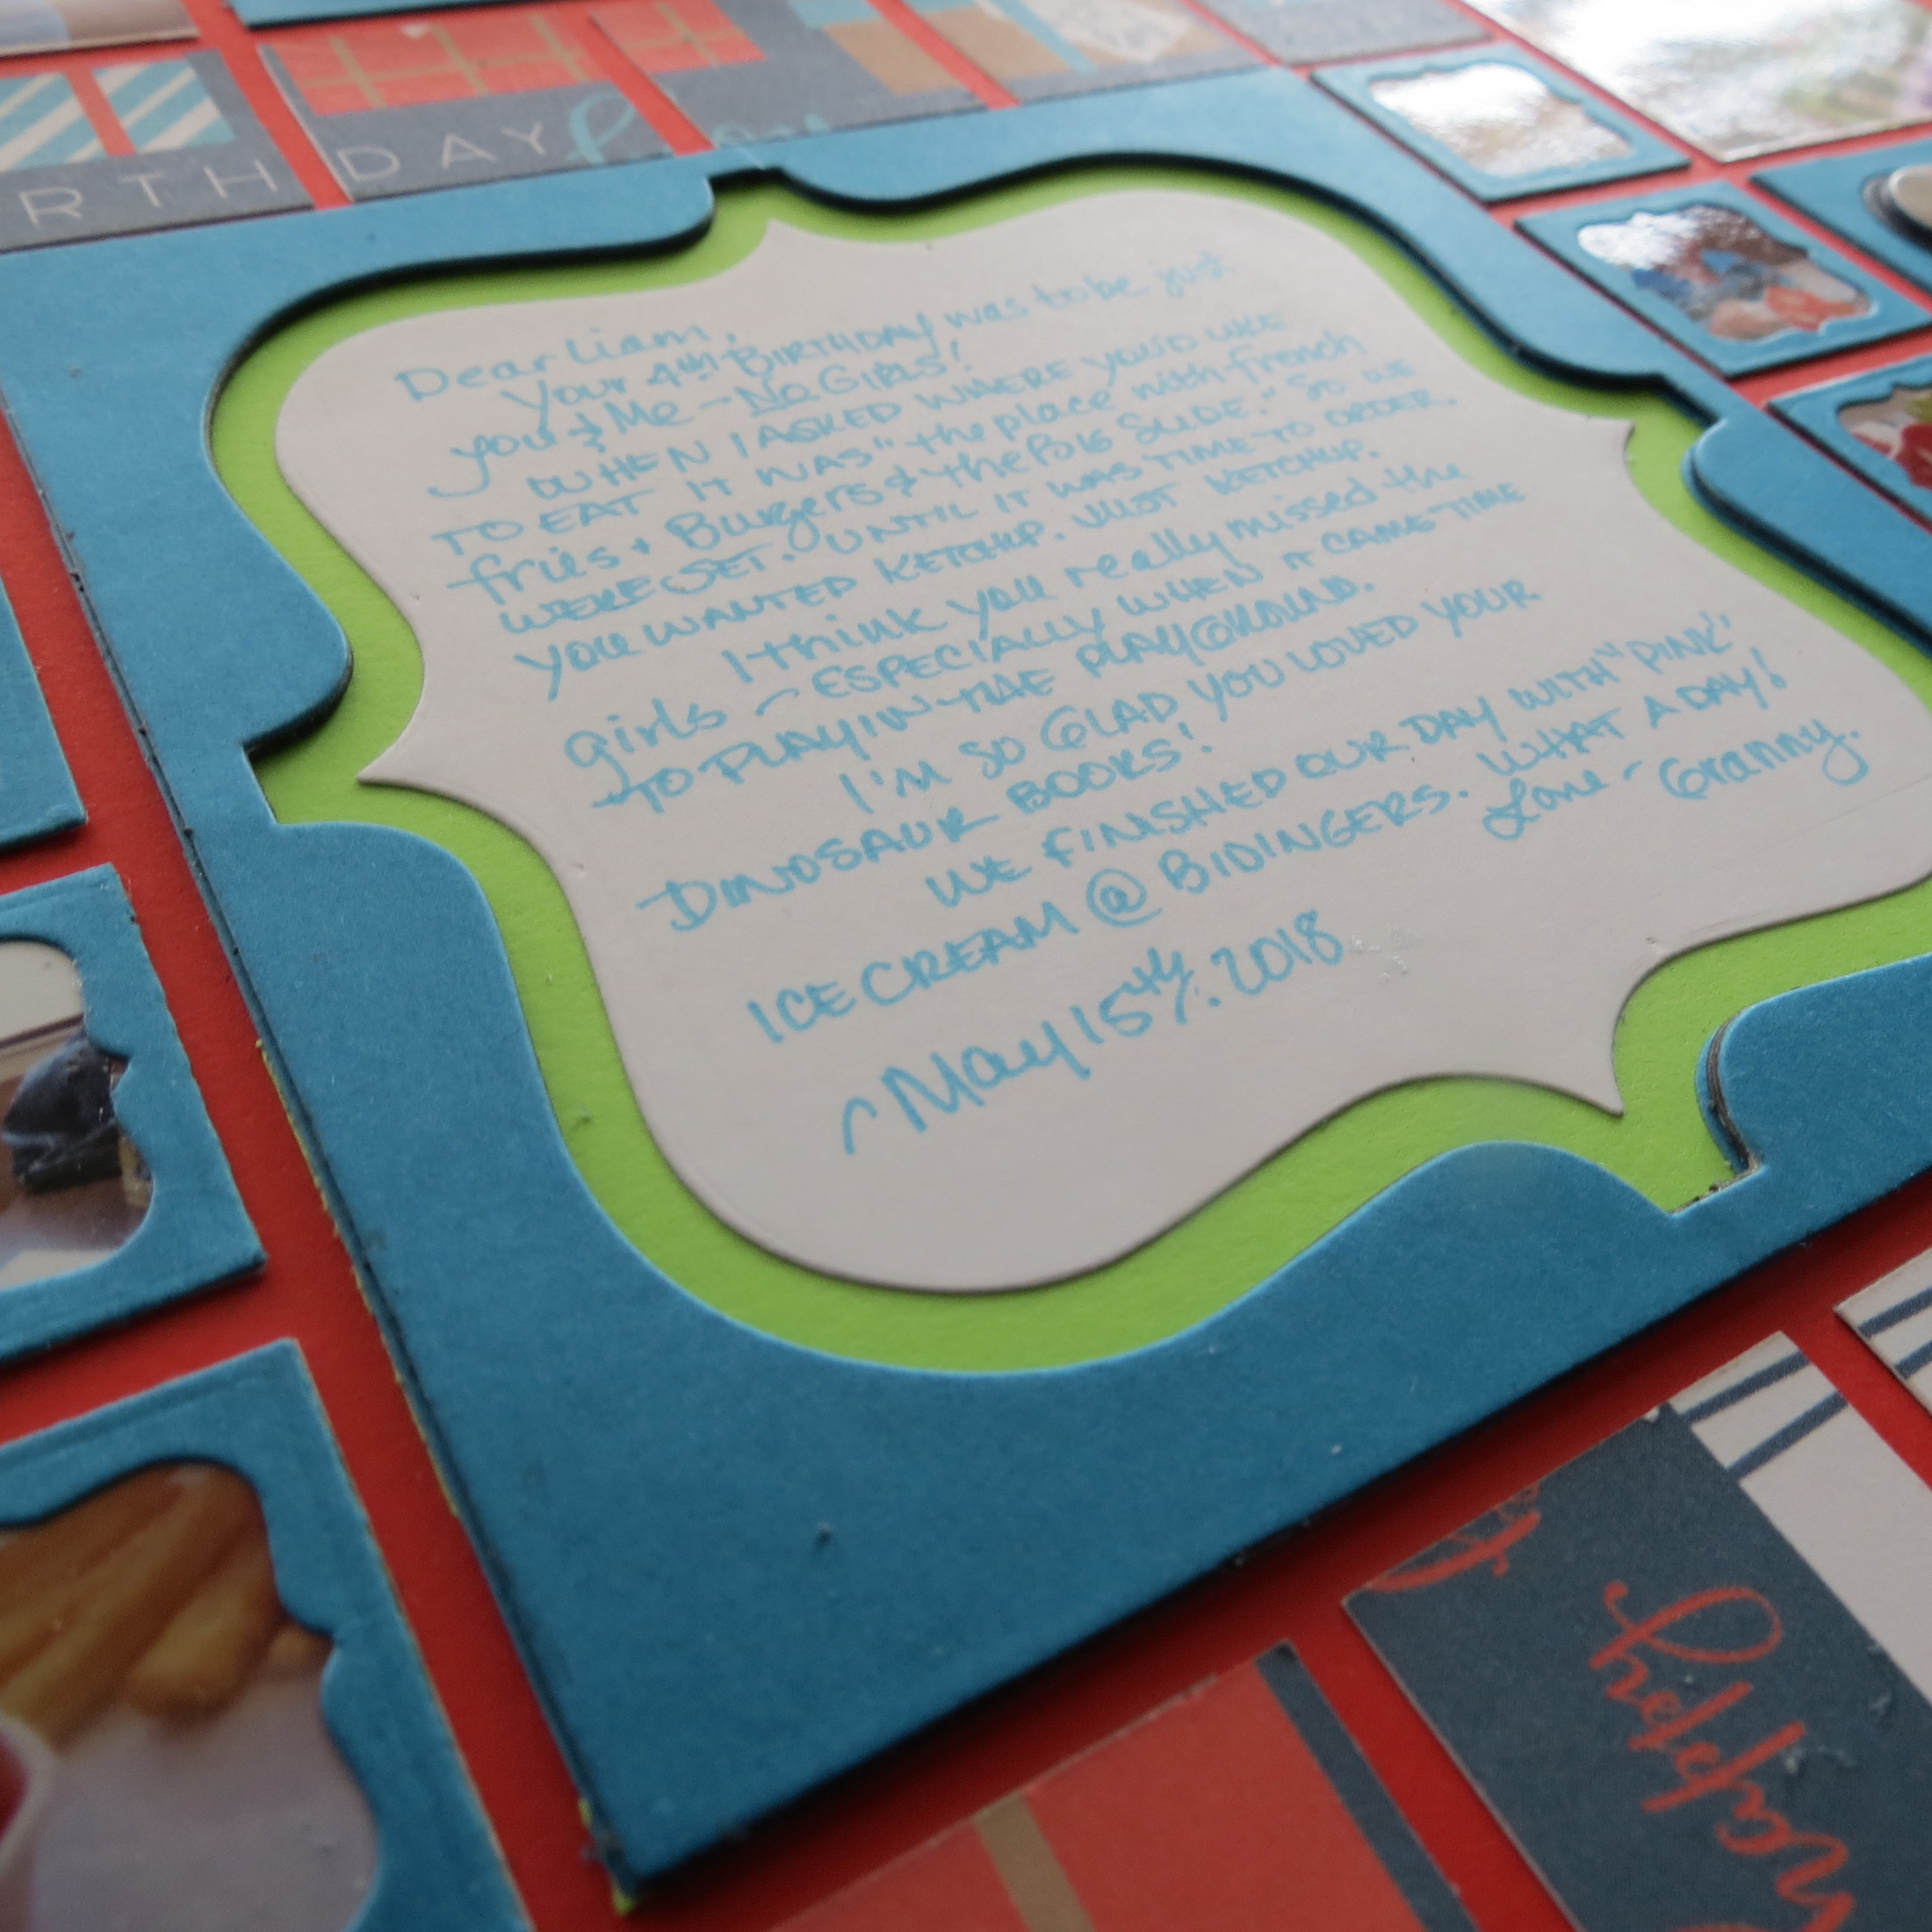 RTHDAY
Dear Liam,
Your 4th BIRTHDAY was to be just
you & Me - No GIRLS!
WHEN I ASKED WHERE YOU'D LIKE
TO EAT IT WAS "the place with french
fries + Burgers & the BIG SLIDE." SO WE
WERE SET. UNTIL IT WAS TIME TO ORDER.
YOU WANTED KETCHUP. JUST KETCHUP.
I think you really missed the
girls - ESPECIALLY WHEN IT CAME TIME
TO PLAY IN THE PLAYGROUND.
I'M SO GLAD YOU LOVED YOUR
DINOSAUR BOOKS!
WE FINISHED OUR DAY WITH "PINK"
ICE CREAM @ BIDINGERS. WHAT A DAY!
Love - Granny.
~ May 15th, 2018
happy